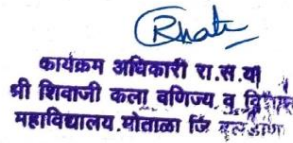 कार्यक्रम अधिकारी रा.स.यो
श्री शिवाजी कला वणिज्य व विज्ञान
महाविद्यालय.मोताळा जि बुलडाणा